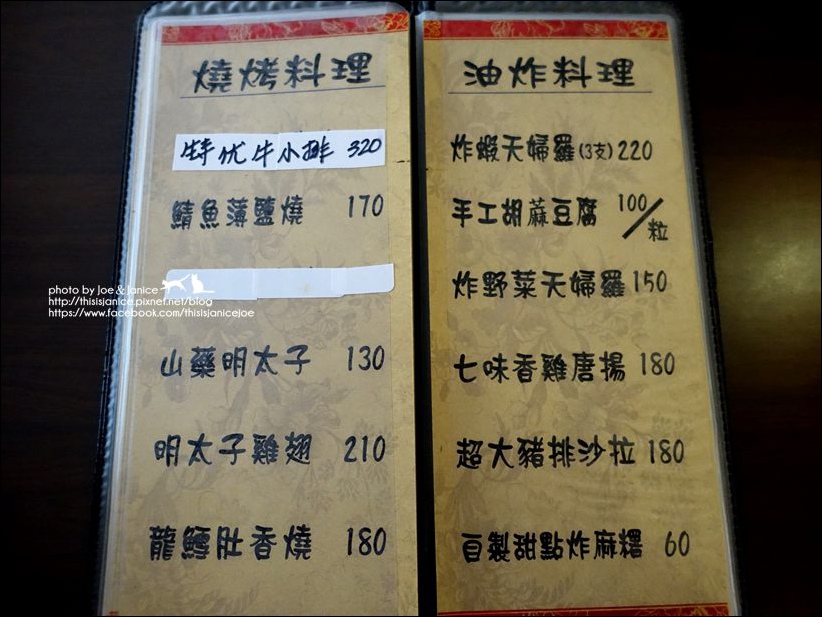 燒烤料理
特优牛小排 320
鯖魚薄鹽燒 170
山藥明太子 130
明太子雞翅 210
龍鱈肚香燒 180
油炸料理
炸蝦天婦羅(3支)220
手工胡蔴豆腐 100/粒
炸野菜天婦羅150
七味香雞唐揚 180
超大豬排沙拉 180
自製甜點炸麻糬 60
photo by Joe & Janice
http://thisisjanice.pixnet.net/blog
https://www.facebook.com/thisisjanicejoe